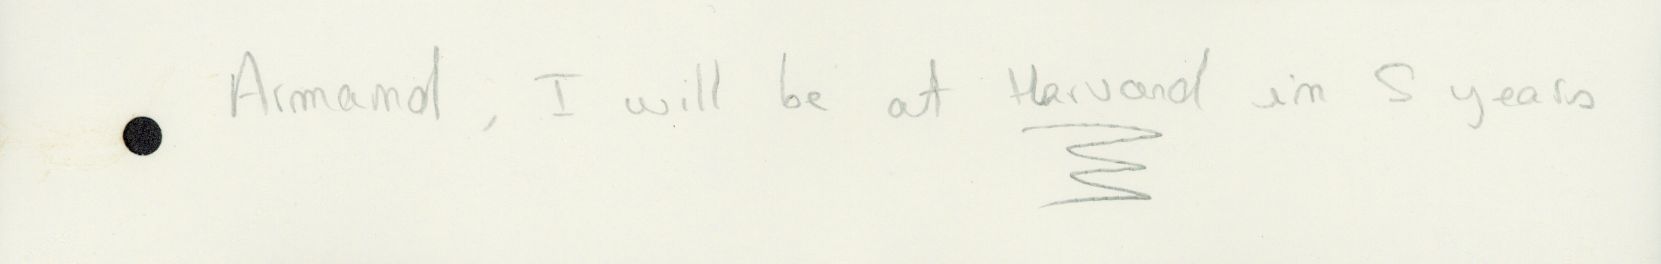 Armand, I will be at Harvard in 5 years